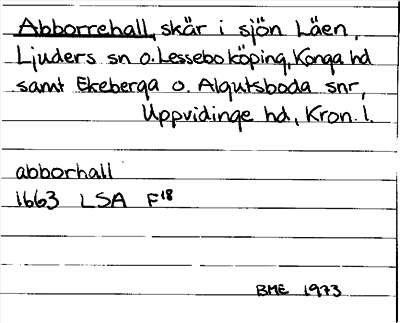 Abborrehall, skär i sjön Läen,
Ljuders sn o. Lessebo köping, Konga hd
samt Ekeberga o. Algutsboda snr,
Uppvidinge hd, Kron. l.
abborhall
1663 LSA F18
BME 1973